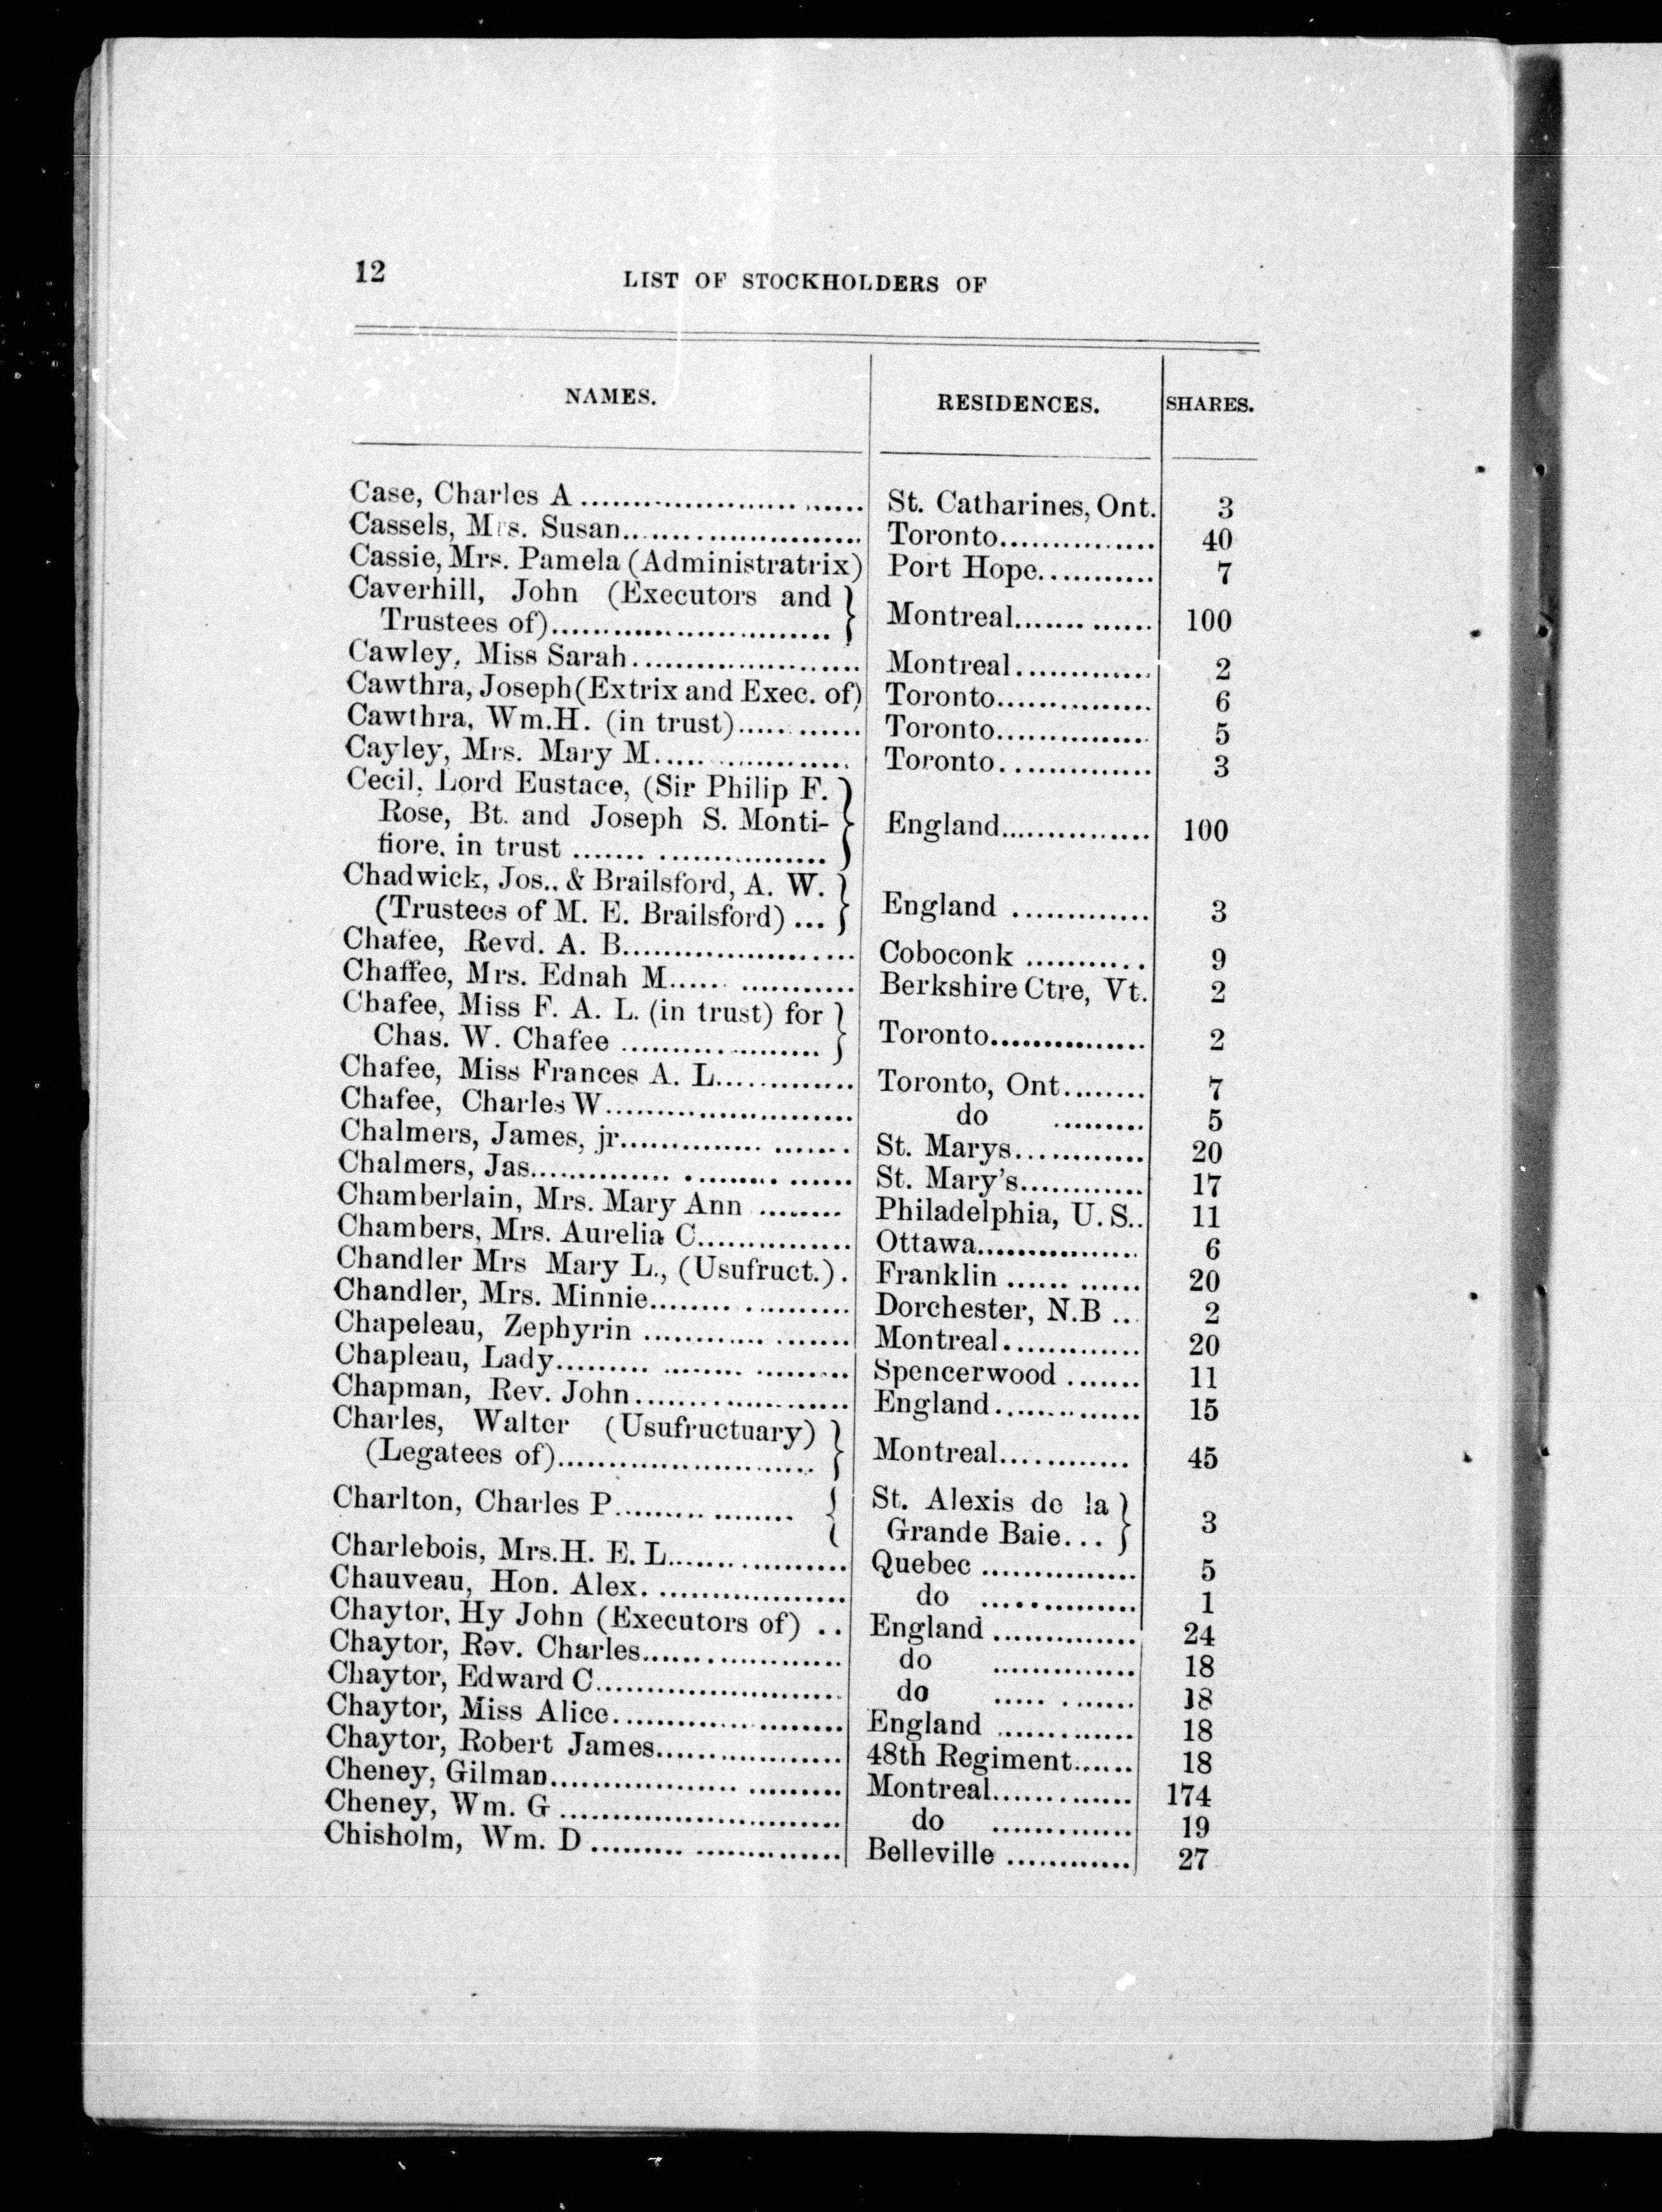 12
LIST OF STOCKHOLDERS OF
NAMES. RESIDENCES. SHARES.
Case, Charles A ............................ St. Catharines, Ont. 3
Cassels, Mrs. Susan........................ Toronto............... 40
Cassie, Mrs. Pamela (Administratrix) Port Hope............ 7
Caverhill, John (Executors and
Trustees of)............................ } Montreal.............. 100
Cawley, Miss Sarah....................... Montreal............. 2
Cawthra, Joseph (Extrix and Exec. of) Toronto............... 6
Cawthra, Wm. H. (in trust)............ Toronto............... 5
Cayley, Mrs. Mary M.................... Toronto............... 3
Cecil, Lord Eustace, (Sir Philip F.
Rose, Bt. and Joseph S. Monti-
fiore, in trust ........................ } England............... 100
Chadwick, Jos., & Brailsford, A. W.
(Trustees of M. E. Brailsford) ... } England ............. 3
Chafee, Revd. A. B....................... Coboconk ........... 9
Chaffee, Mrs. Ednah M.................. Berkshire Ctre, Vt. 2
Chafee, Miss F. A. L. (in trust) for
Chas. W. Chafee .................... } Toronto............... 2
Chafee, Miss Frances A. L............. Toronto, Ont........ 7
Chafee, Charles W........................ do ......... 5
Chalmers, James, jr...................... St. Marys............ 20
Chalmers, Jas............................. St. Mary's............ 17
Chamberlain, Mrs. Mary Ann ......... Philadelphia, U. S.. 11
Chambers, Mrs. Aurelia C............... Ottawa................ 6
Chandler Mrs Mary L., (Usufruct.). Franklin ............. 20
Chandler, Mrs. Minnie................... Dorchester, N.B ... 2
Chapeleau, Zephyrin .................... Montreal............. 20
Chapleau, Lady........................... Spencerwood ....... 11
Chapman, Rev. John..................... England.............. 15
Charles, Walter (Usufructuary)
(Legatees of)......................... } Montreal............. 45
Charlton, Charles P.................. { St. Alexis de la
Grande Baie... } 3
Charlebois, Mrs. H. E. L................. Quebec ............... 5
Chauveau, Hon. Alex. ................... do ............... 1
Chaytor, Hy John (Executors of) .. England .............. 24
Chaytor, Rev. Charles.................... do .............. 18
Chaytor, Edward C........................ do ............ 18
Chaytor, Miss Alice....................... England ............. 18
Chaytor, Robert James.................. 48th Regiment...... 18
Cheney, Gilman........................... Montreal............. 174
Cheney, Wm. G ........................... do ............. 19
Chisholm, Wm. D ....................... Belleville ............ 27